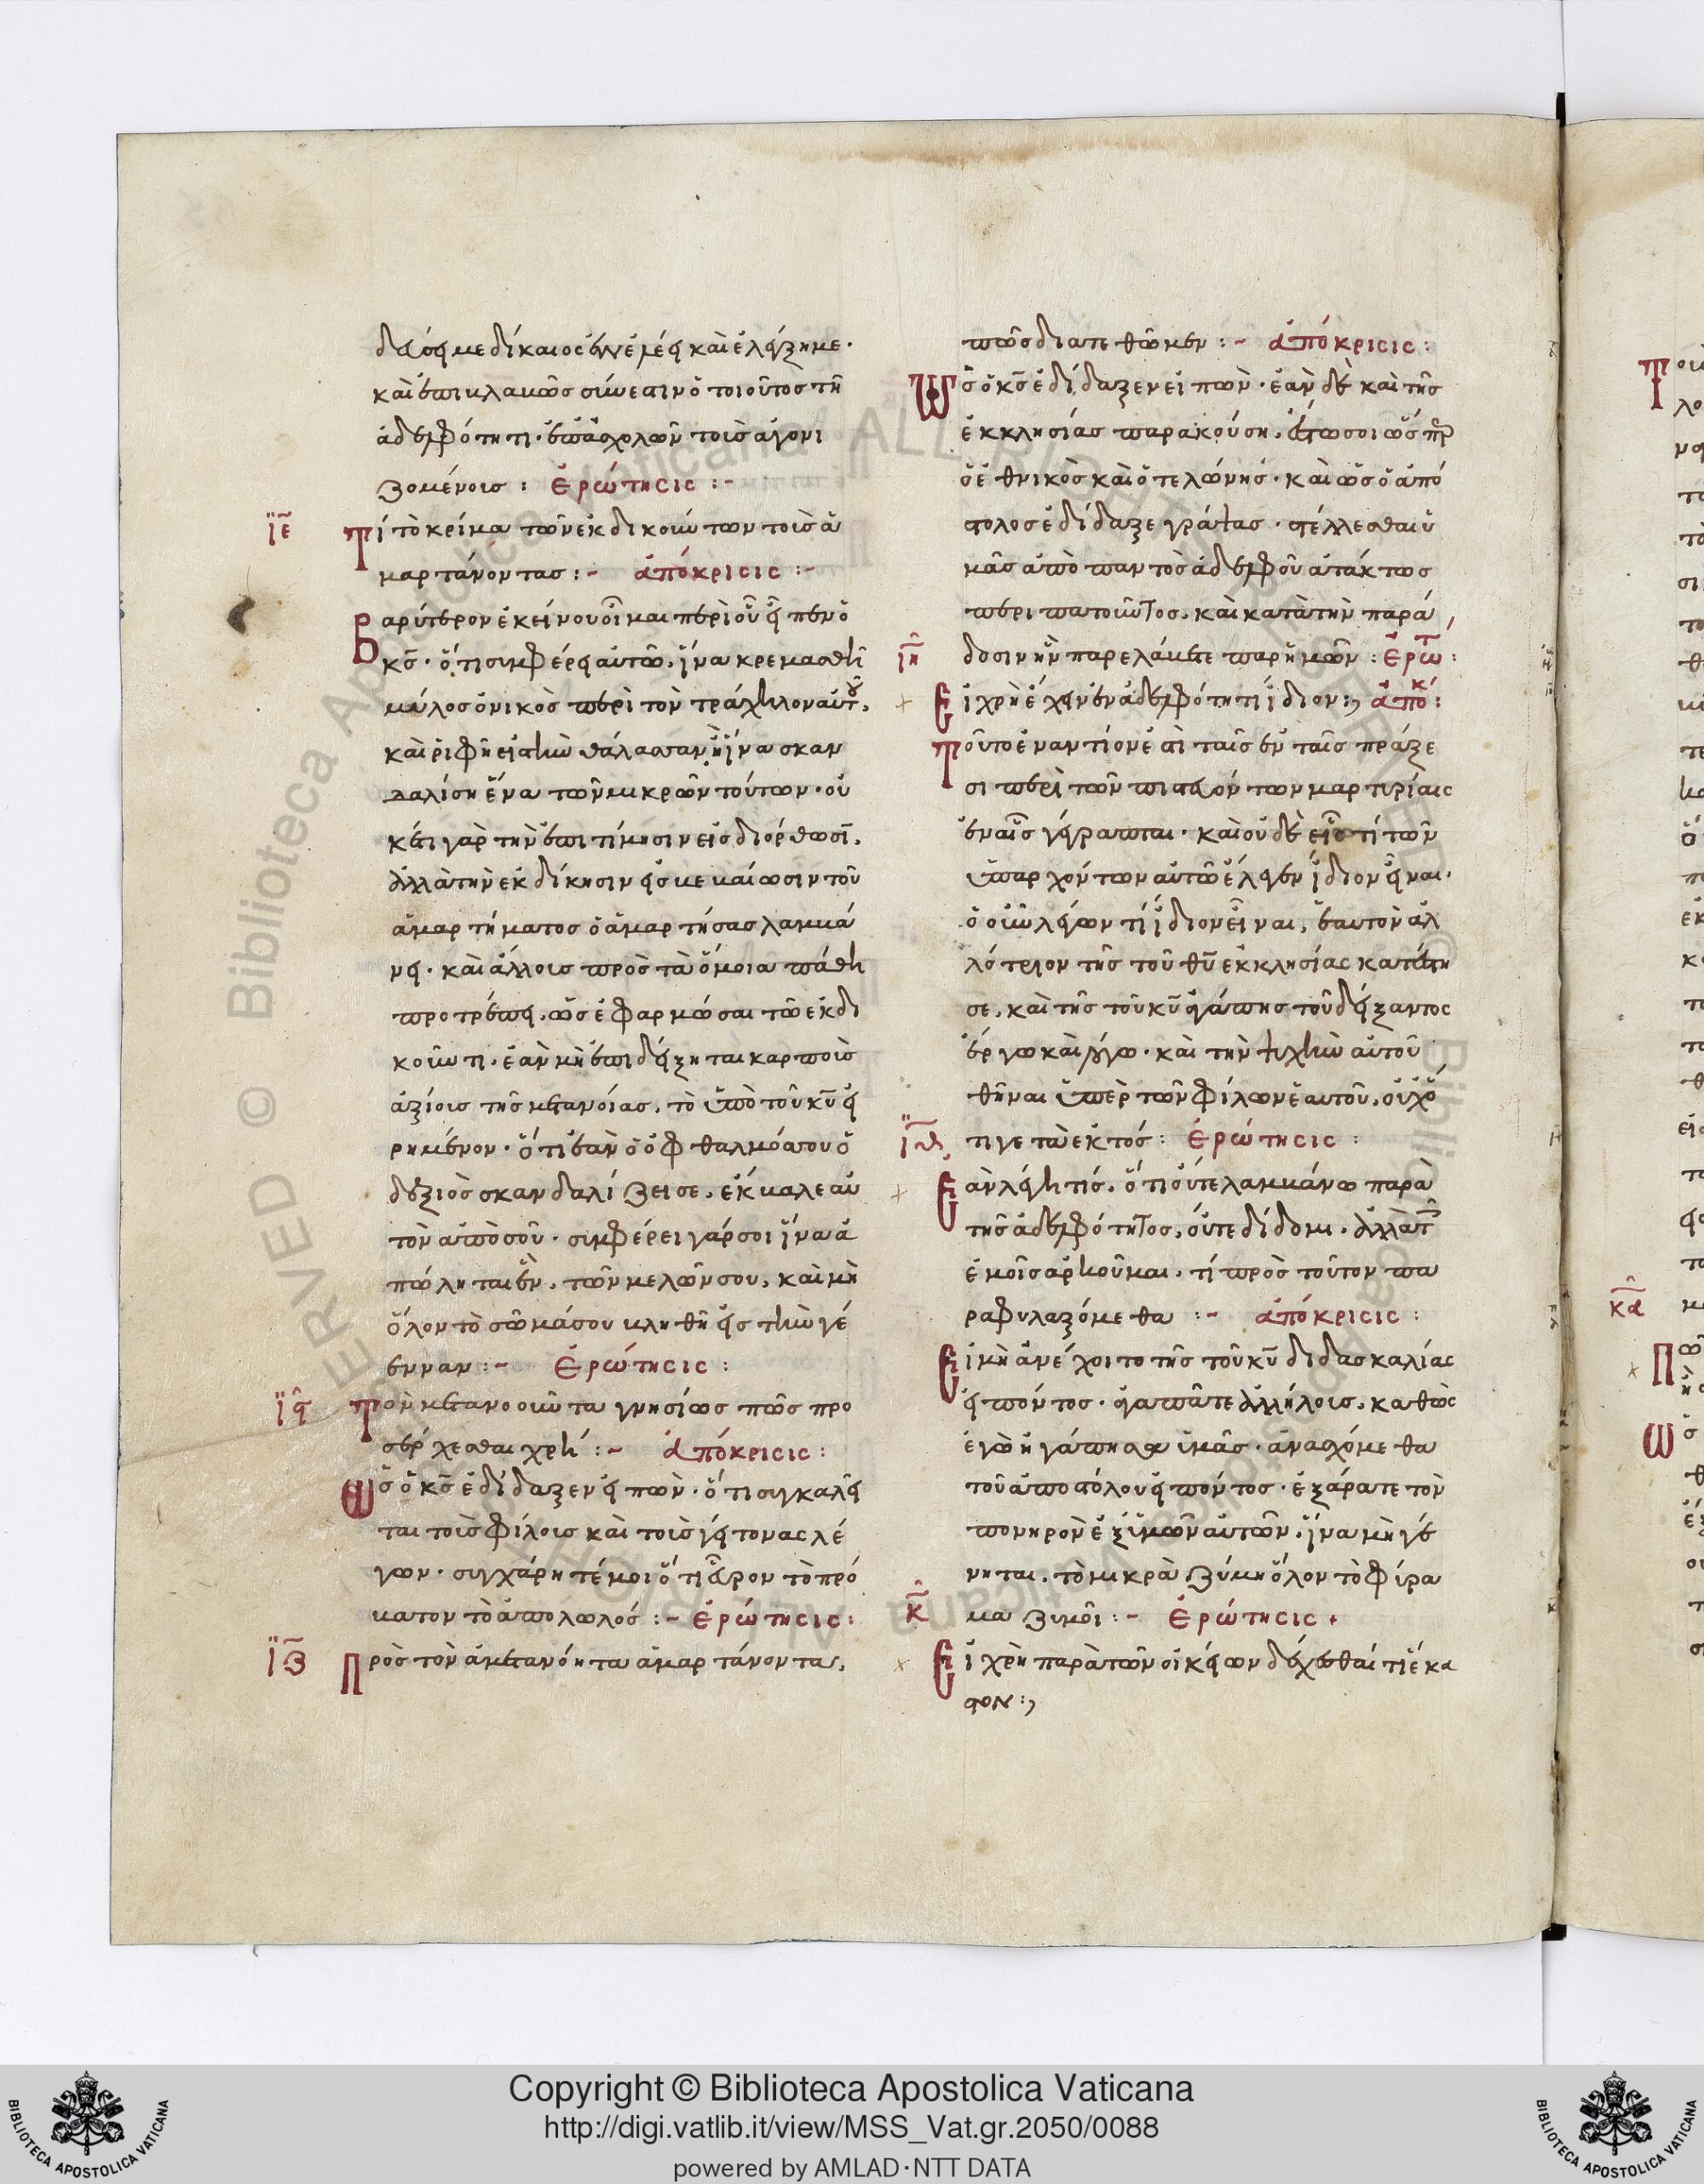 δεύσει με δίκαιος ἐν ἐλέει καὶ ἐλέγξει με·
καὶ ἐπιβλαβῶς σύνεστιν ὁ τοιοῦτος τῇ
ἀδελφότητι· ἐπασχολῶν τοῖς ἀγωνι
ζομένοις : ἐρώτησις :-
ϊε Τί τὸ κρίμα τῶν ἐκδικούντων τοὺς ἁ
μαρτάνοντας :- ἀπόκρισις :-
Βαρύτερον ἐκείνου οἶμαι περὶ οὗ εἶπεν ὁ
κς· ὅτι συμφέρει αὐτῷ, ἵνα κρεμασθῇ
μύλος ὀνικὸς περὶ τὸν τράχηλον αὐτοῦ,
καὶ ῥιφῇ εἰς τὴν θάλασσαν ἢ ἵνα σκαν
δαλίσῃ ἕνα τῶν μικρῶν τούτων· οὐ
κέτι γὰρ τὴν ἐπιτίμησιν εἰς διόρθωσιν,
ἀλλὰ τὴν ἐκδίκησιν εἰς βεβαίωσιν τοῦ
ἁμαρτήματος ὁ ἁμαρτήσας λαμβά
νει· καὶ ἄλλοις πρὸς τὰ ὅμοια πάθη
προτρέπει, ὡς ἐφαρμόσαι τῷ ἐκδι
κοῦντι, ἐὰν μὴ ἐπιδείξηται καρποὺς
ἀξίους τῆς μετανοίας, τὸ ὑπὸ τοῦ κυ εἰ
ρημένον· ὅτι ἐὰν ὁ ὀφθαλμός σου ὁ
δεξιὸς σκανδαλίζει σε, ἔκβαλε αὐ
τὸν ἀπὸ σοῦ· συμφέρει γάρ σοι ἵνα ἀ
πώληται ἓν, τῶν μελῶν σου, καὶ μὴ
ὅλον τὸ σῶμά σου βληθῇ εἰς τὴν γέ
ενναν :- Ἐρώτησις :
ϊϛ Τὸν μετανοοῦντα γνησίως πῶς προ
σέρχεσθαι χρή :- ἀπόκρισις :
Ὡς ὁ κς ἐδίδαξεν εἰπὼν· ὅτι συγκαλεῖ
ται τοὺς φίλους καὶ τοὺς γείτονας λέ
γων· συγχάρητέ μοι ὅτι εὗρον τὸ πρό
βατον τὸ ἀπολωλός :- ἐρώτησις :
ϊζ Πρὸς τὸν ἀμετανόητα ἁμαρτάνοντα,
πῶς διατεθῶμεν :- ἀπόκρισις :
Ὡς ὁ κς ἐδίδαξεν εἰπὼν· ἐὰν δὲ καὶ τῆς
ἐκκλησίας παρακούσῃ, ἔστω σοι ὥσπερ
ὁ ἐθνικὸς καὶ ὁ τελώνης· καὶ ὡς ὁ ἀπό
στολος ἐδίδαξε γράψας· στέλλεσθαι ὑ
μᾶς ἀπὸ παντὸς ἀδελφοῦ ἀτάκτως
περιπατοῦντος, καὶ κατὰ τὴν παρά
ϊη δοσιν ἣν παρελάβετε παρ ἡμῶν : Ἐρώτ :
Εἰ χρὴ ἔχειν ἐν ἀδελφότητι ἴδιον :, ἀποκ :
Τοῦτο ἐναντίον ἐστὶ ταῖς ἐν ταῖς πράξε
σι περὶ τῶν πιστευόντων μαρτυρίαις
ἐν αἷς γέγραπται· καὶ οὐδὲ εἷς τί τῶν
ὑπαρχόντων αὐτῷ ἔλεγεν ἴδιον εἶναι·
ὁ οὖν λέγων τί ἴδιον εἶναι, ἑαυτὸν ἀλ
λότριον τῆς τοῦ θυ ἐκκλησίας κατέστη
σε, καὶ τῆς τοῦ κυ ἀγάπης τοῦ δείξαντος
ἔργω καὶ λόγω· καὶ τὴν ψυχὴν αὐτοῦ
θῆναι ὑπὲρ τῶν φίλων ἑαυτοῦ, οὐχό
ϊθ τι γε τὰ ἐκτός : Ἐρώτησις :
Ἐὰν λέγῃ τίς, ὅτι οὔτε λαμβάνω παρὰ
τῆς ἀδελφότητος, οὔτε δίδομι· ἀλλὰ τοῖς
ἐμοῖς ἀρκοῦμαι, τί πρὸς τοῦτον πα
ραφυλαξόμεθα :- ἀπόκρισις :
Εἰ μὴ ἀνέχοιτο τῆς τοῦ κυ διδασκαλίας
εἰπόντος· ἀγαπᾶτε ἀλλήλοις, καθὼς
ἐγὼ ἠγάπησα ὑμᾶς· ἀνασχόμεθα
τοῦ ἀποστόλου εἰπόντος· ἐξάρατε τὸν
πονηρὸν ἐξ ὑμῶν αὐτῶν, ἵνα μὴ γέ
νηται, τὸ μικρὰ ζύμη ὅλον τὸ φύρα
κ μα ζυμοῖ :- Ἐρώτησις +
Εἰ χρὴ παρὰ τῶν οἰκείων δέχεσθαί τι ἕκα
στον :,
Copyright © Biblioteca Apostolica Vaticana
http://digi.vatlib.it/view/MSS_Vat.gr.2050/0088
powered by AMLAD·NTT DATA